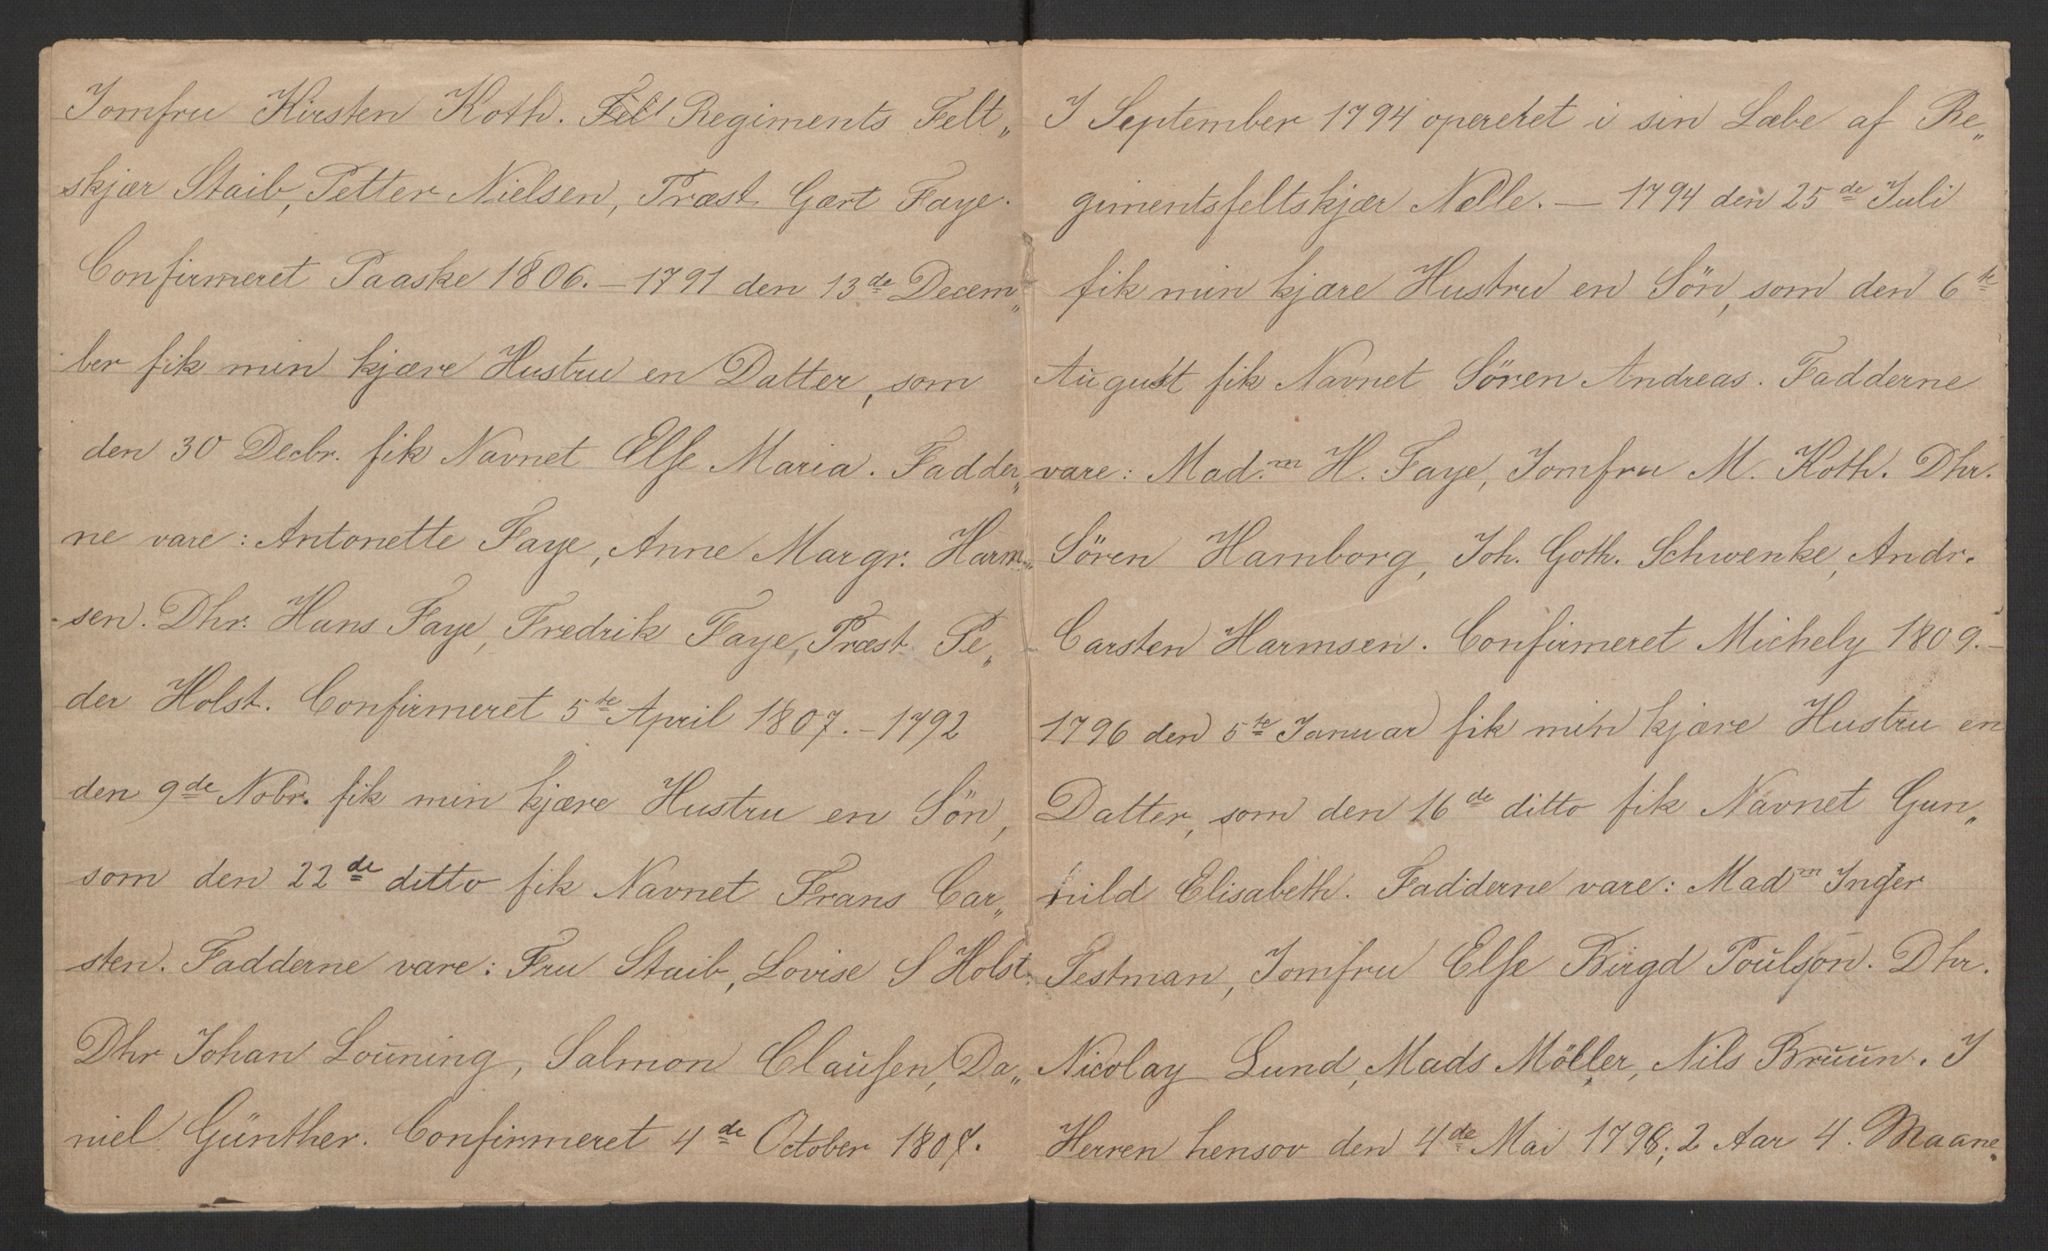 Jomfru Kirsten Koth. Felt Regiments Felt„
skjær Staib, Petter Nielsen, Præst Gært Faye.
Confirmeret Paaske 1806. – 1791 den 13de Decem„
ber fik min kjære Hustru en Datter, som
den 30 Decbr. fik Navnet Else Maria. Fadder„
ne vare: Antonette Faye, Anne Margr. Harm„
sen. Dhr. Hans Faye, Fredrik Faye, Præst Pe„
der Holst. Confirmeret 5te April 1807. – 1792
den 9de Nobr. fik min kjære Hustru en Sön,
som den 22de ditto fik Navnet Frans Car„
sten. Fadderne vare: Fru Staib, Lovise S Holst.
Dhr Johan Louning, Salmon Clausen, Da„
niel Günther. Confirmeret 4de October 1807.
I September 1794 opereret i sin Læbe af Re„
gimentsfeltskjær Nolle. – 1794 den 25de Juli
fik min kjære Hustru en Sön, som den 6te
August fik Navnet Sören Andreas. Fadderne
vare: Mad.m H. Faye, Jomfru M. Koth. Dhr.
Sören Hamborg, Joh. Goth. Schwenke, Andr.
Carsten Harmsen. Confirmeret Michely 1809. –
1796 den 5te Januar fik min kjære Hustru en
Datter, som den 16de ditto fik Navnet Gun„
hild Elisabeth. Fadderne vare: Madm Inger
Testman, Jomfru Else Birgd Poulson. Dhr.
Nicolay Lund, Mads Möller, Nils Bruun. I
Herren hensov den 4de Mai 1798; 2 Aar 4. Maane„